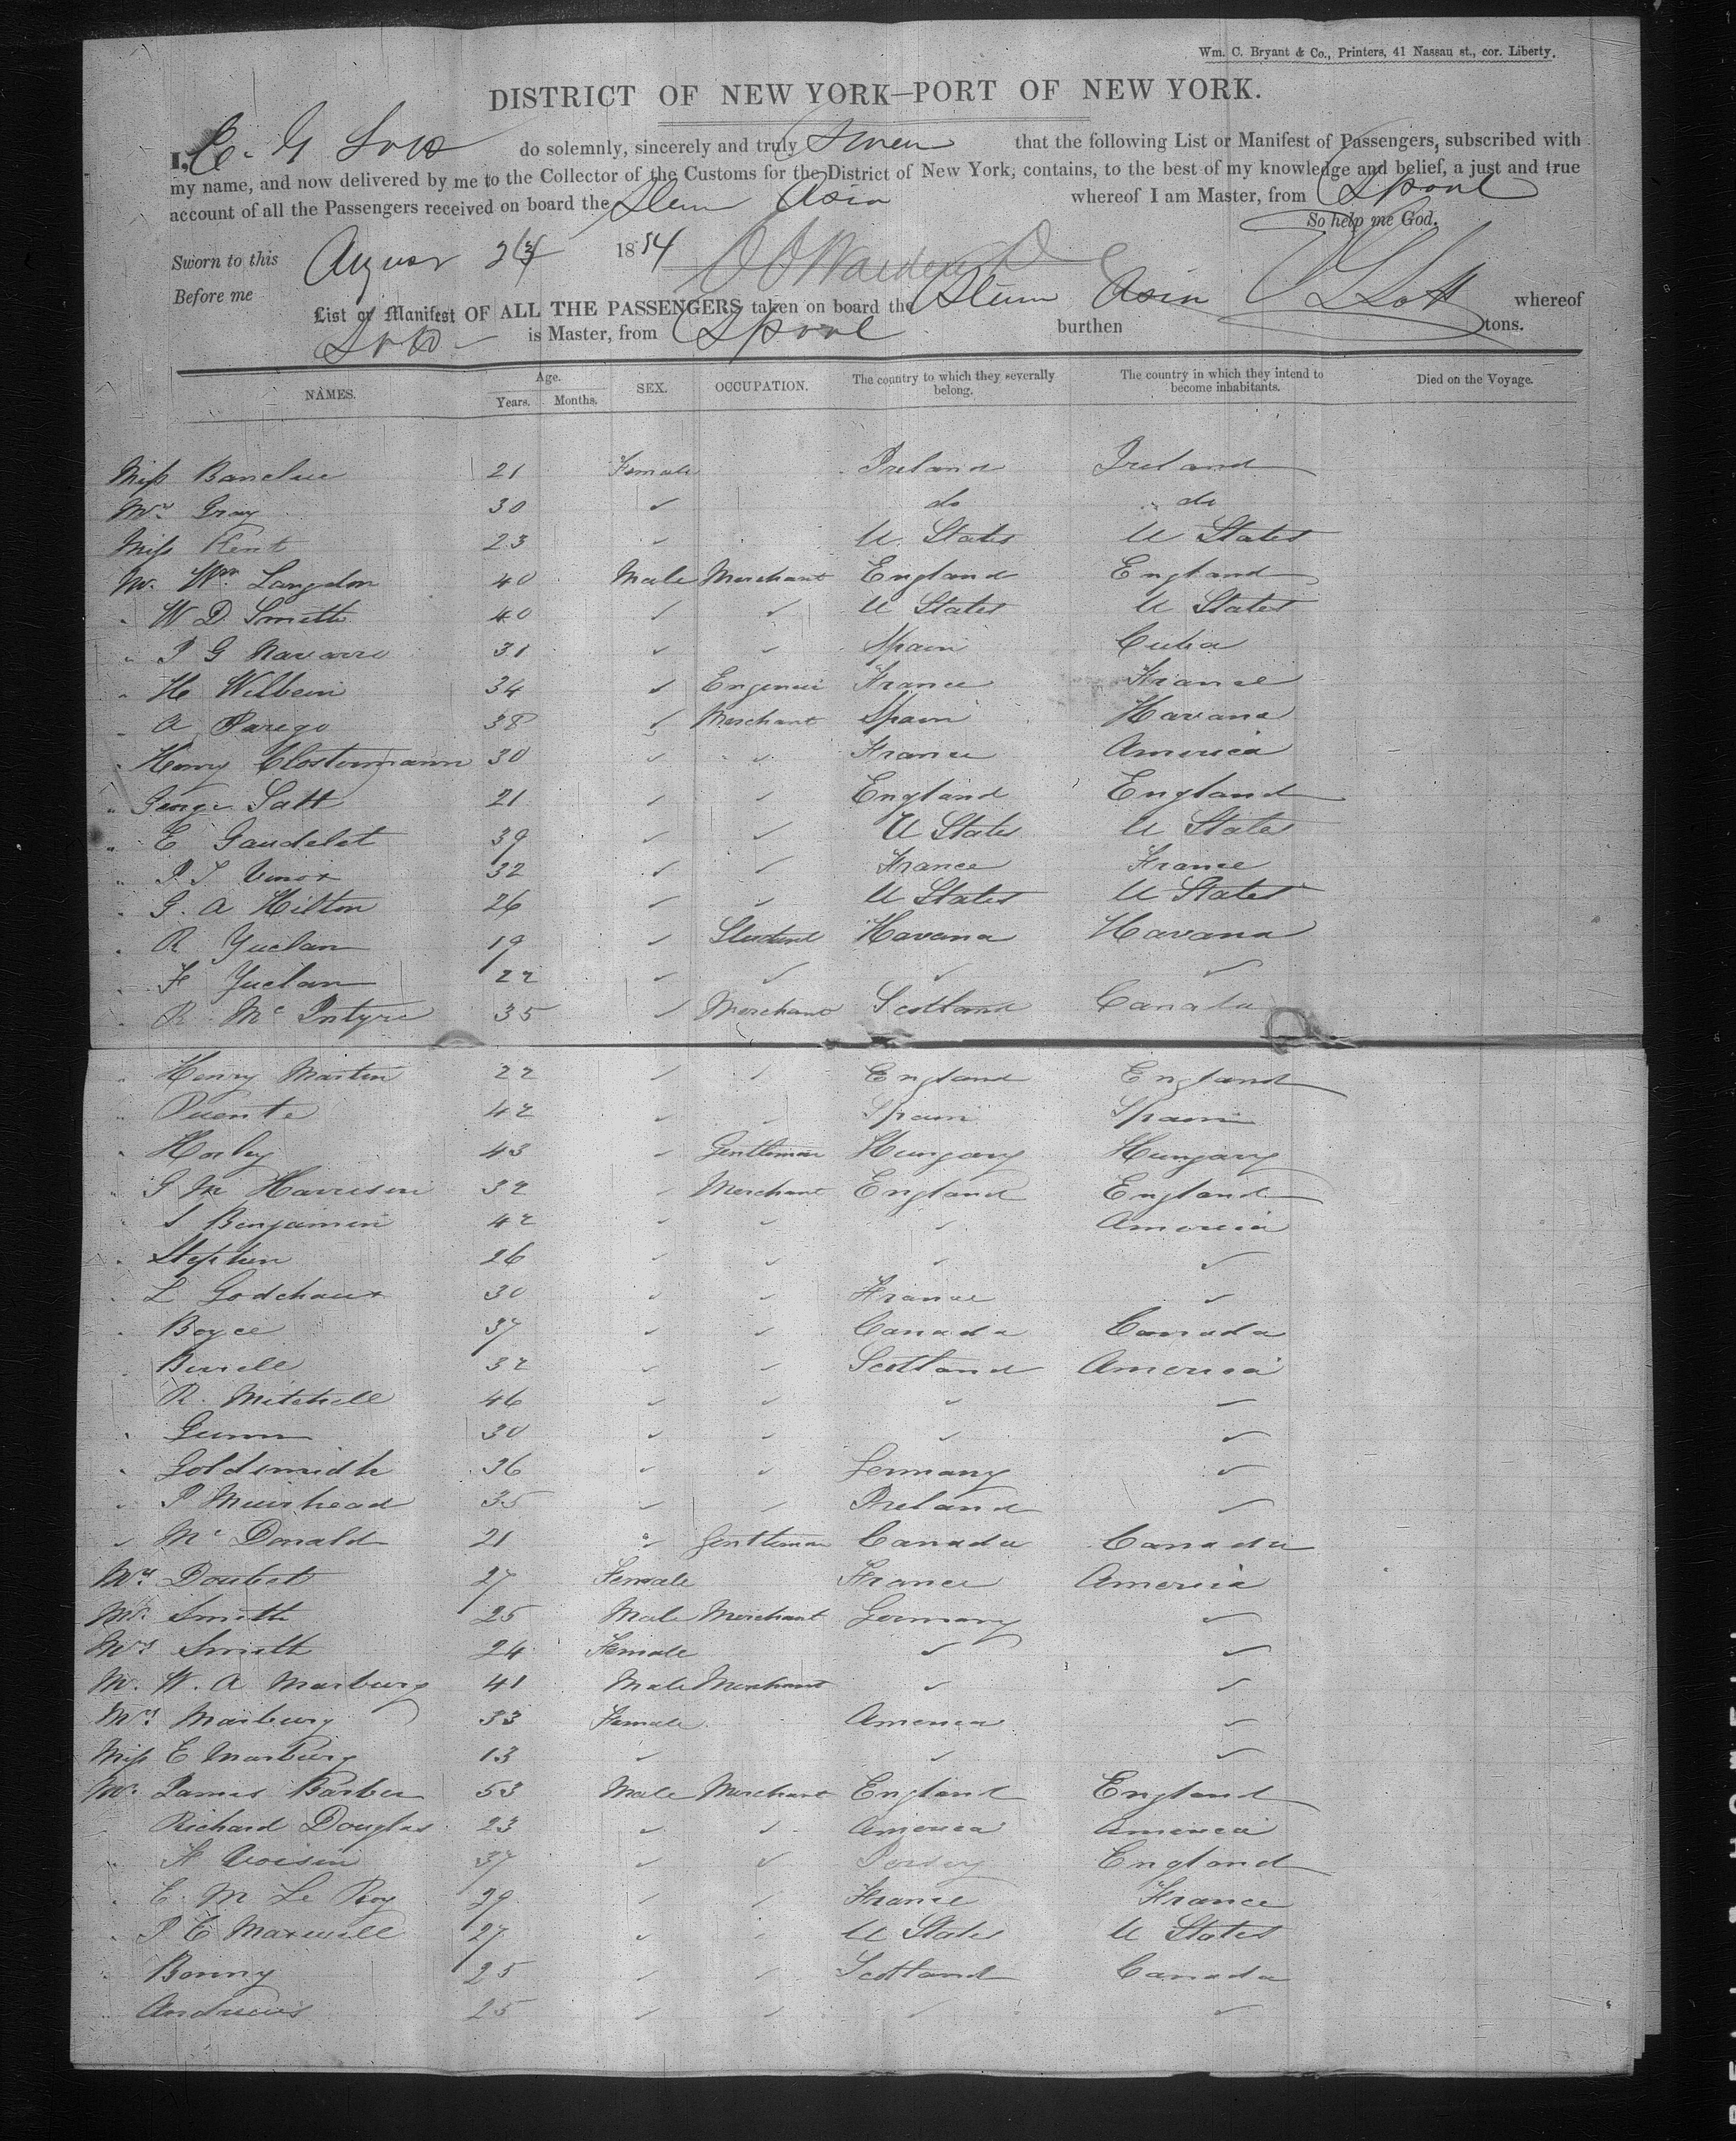 Wm. C. Bryant & Co., Printers, 41 Nassau st., cor. Liberty.
DISTRICT OF NEW YORK—PORT OF NEW YORK.
I, E. G Lott do solemnly, sincerely and truly swear that the following List or Manifest of Passengers, subscribed with
my name, and now delivered by me to the Collector of the Customs for the District of New York, contains, to the best of my knowledge and belief, a just and true
account of all the Passengers received on board the Steam Asia whereof I am Master, from Lpool
So help me God.
Sworn to this August 1854
Before me
List or Manifest OF ALL THE PASSENGERS taken on board the Steam Asia whereof
Lott is Master, from Lpool burthen tons.
NAMES. Age. Years. Months. SEX. OCCUPATION. The country to which they severally belong. The country in which they intend to become inhabitants. Died on the Voyage.
Miss 21 Female Ireland Ireland
Mrs Gray 30 ✓ do " do
Miss Kent 23 ✓ U. States U States
Mr. Wm Langdon 40 Male Merchant England England
" W D Smith 40 ✓ ✓ U States U States
" P G Navarro 31 ✓ ✓ Spain Cuba
" H 34 ✓ France France
" A Parego 38 ✓ Merchant Spain Havana
" Henry Clostermann 30 ✓ ✓ France America
" George Salt 21 ✓ ✓ England England
" E Gaudelet 39 ✓ ✓ U States U States
" 32 ✓ ✓ France France
" G. A Hilton 26 ✓ ✓ U States U States
" R Yuclan 19 ✓ Student Havana Havana
" F Yuclan 22 ✓ ✓ ✓ ✓
" R McIntyre 35 ✓ Merchant Scotland Canada
" Henry Martin 22 ✓ ✓ England England
" Puente 42 ✓ ✓ Spain Spain
" Horley 43 ✓ Gentleman Hungary Hungary
" G M Harrison 32 ✓ Merchant England England
" S Benjamin 42 ✓ ✓ ✓ America
" Stephen 26 ✓ ✓ ✓ ✓
" L Godchaux 30 ✓ ✓ France ✓
" Boyce 37 ✓ ✓ Canada Canada
" 32 ✓ ✓ Scotland America
R. Mitchell 46 ✓ ✓ ✓ ✓
" Gunn 30 ✓ ✓ ✓ ✓
" Goldsmidh 36 ✓ ✓ Germany ✓
" P Muirhead 35 ✓ ✓ Ireland ✓
" McDonald 21 " Gentleman Canada Canada
Mrs Doubet 27 Female France America
Mr. Smith 25 Male Merchant Germany ✓
Mrs Smith 24 Female ✓ ✓
Mr. W. A Marburg 41 Male Merchant ✓ ✓
Mrs Marburg 33 Female America ✓
Miss E Marburg 13 ✓ ✓ ✓
Mr. James Barber 53 Male Merchant England England
Richard Douglas 23 ✓ ✓ America America
" F Voisin 37 ✓ ✓ England
" C. M Le Roy 29 ✓ ✓ France France
" P E Maxwell 27 ✓ ✓ U States U States
" Bonny 25 ✓ ✓ Scotland Canada
Andrews 25 ✓ ✓ ✓ ✓